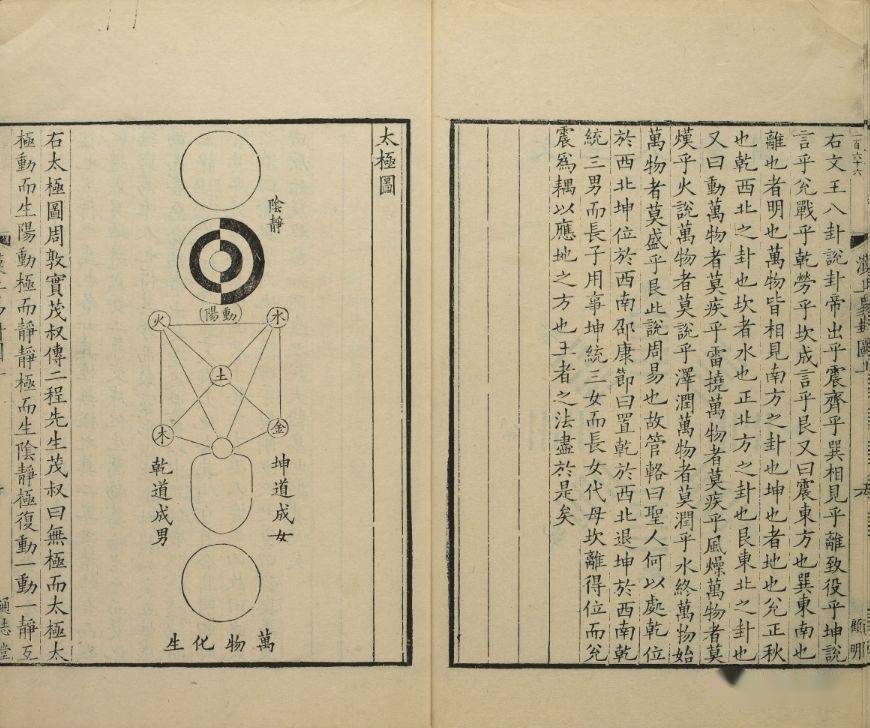 一百六十六
漢上易卦圖上
顧明
右文王八卦說卦帝出乎震齊乎巽相見乎離致役乎坤說
言乎兌戰乎乾勞乎坎成言乎艮又曰震東方也巽東南也
離也者明也萬物皆相見南方之卦也坤也者地也兌正秋
也乾西北之卦也坎者水也正北方之卦也艮東北之卦也
又曰動萬物者莫疾乎雷撓萬物者莫疾乎風燥萬物者莫
熯乎火說萬物者莫說乎澤潤萬物者莫潤乎水終萬物始
萬物者莫盛乎艮此說周易也故管輅曰聖人何以處乾位
於西北坤位於西南邵康節曰置乾於西北退坤於西南乾
統三男而長子用事坤統三女而長女代母坎離得位而兌
震爲耦以應地之方也王者之法盡於是矣
太極圖
陰靜
陽動
水
火
土
金
木
坤道成女
乾道成男
萬物化生
右太極圖周敦實茂叔傳二程先生茂叔曰無極而太極太
極動而生陽動極而靜靜極而生陰靜極復動一動一靜互
通志堂